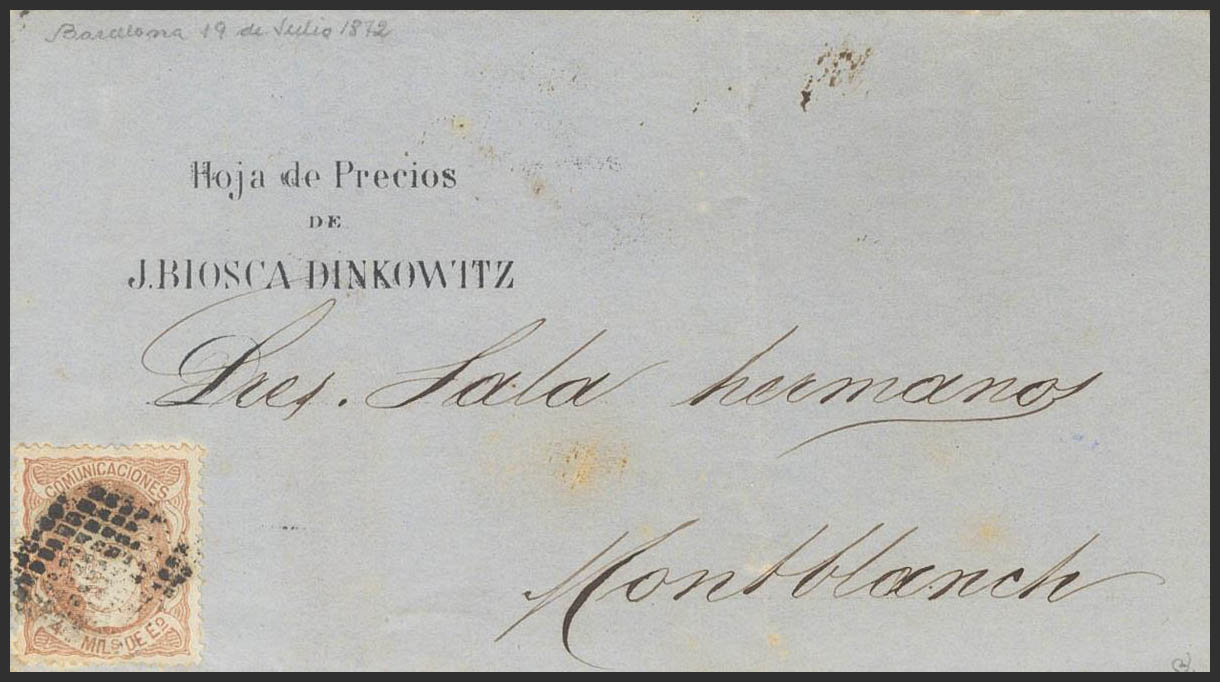 Barcelona 19 de Julio 1872
Hoja de Precios
DE
J. BIOSCA DINKOWITZ
Sres. Sala hermanos
Montblanch
COMUNICACIONES
4 MILS DE EO